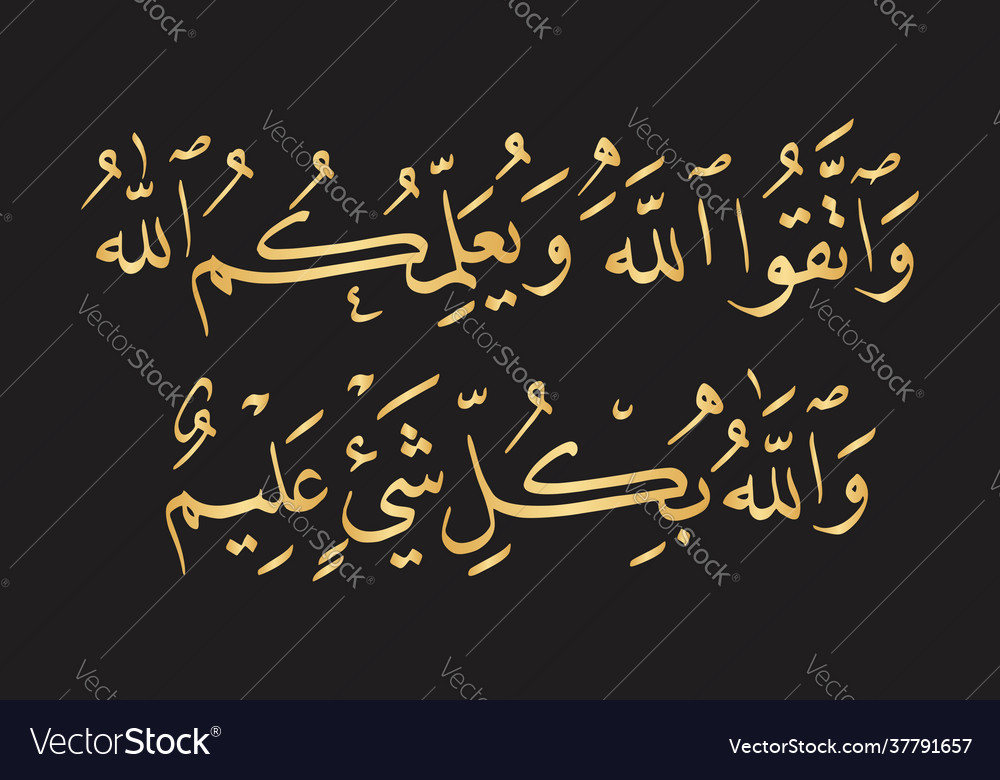 وَٱتَّقُوا ٱللَّهَ وَيُعَلِّمُكُمُ ٱللَّهُ
وَٱللَّهُ بِكُلِّ شَيْءٍ عَلِيمٌ
VectorStock®
VectorStock.com/37791657